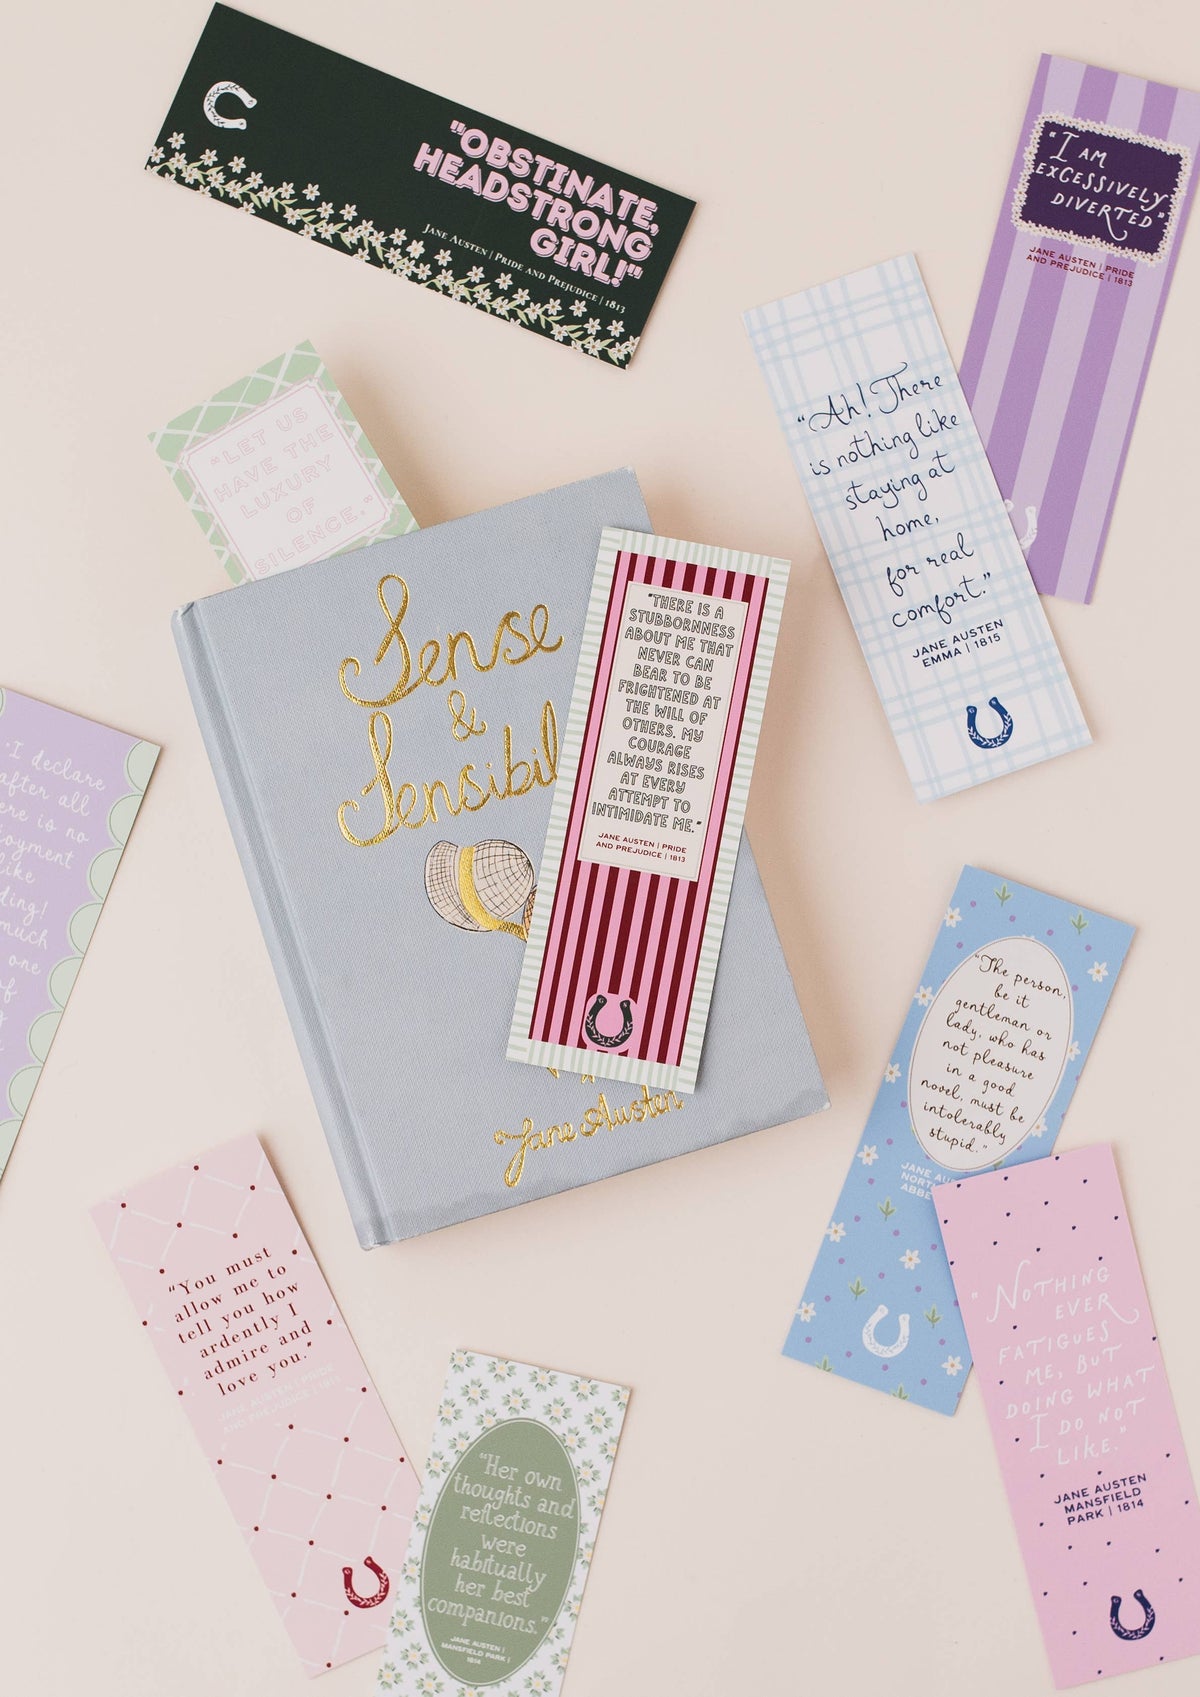 "OBSTINATE,
HEADSTRONG
GIRL!"
JANE AUSTEN | PRIDE AND PREJUDICE | 1813
"I AM
EXCESSIVELY
DIVERTED"
JANE AUSTEN | PRIDE
AND PREJUDICE | 1813
"Ah! There
is nothing like
staying at
home,
for real
comfort."
JANE AUSTEN
EMMA | 1815
"LET US
HAVE THE
LUXURY
OF
SILENCE."
Sense
&
Sensibil
Jane Austen
"THERE IS A
STUBBORNNESS
ABOUT ME THAT
NEVER CAN
BEAR TO BE
FRIGHTENED AT
THE WILL OF
OTHERS. MY
COURAGE
ALWAYS RISES
AT EVERY
ATTEMPT TO
INTIMIDATE ME."
JANE AUSTEN | PRIDE
AND PREJUDICE | 1813
G S
"I declare
after all
ere is no
joyment
like
ding!
much
one
of
"The person,
be it
gentleman or
lady, who has
not pleasure
in a good
novel, must be
intolerably
stupid."
JANE AU
NORT
ABBE
"NOTHING
EVER
FATIGUES
ME, BUT
DOING WHAT
I DO NOT
LIKE."
JANE AUSTEN
MANSFIELD
PARK | 1814
"You must
allow me to
tell you how
ardently I
admire and
love you."
JANE AUSTEN | PRIDE
AND PREJUDICE | 1813
"Her own
thoughts and
reflections
were
habitually
her best
companions."
JANE AUSTEN |
MANSFIELD PARK |
1814